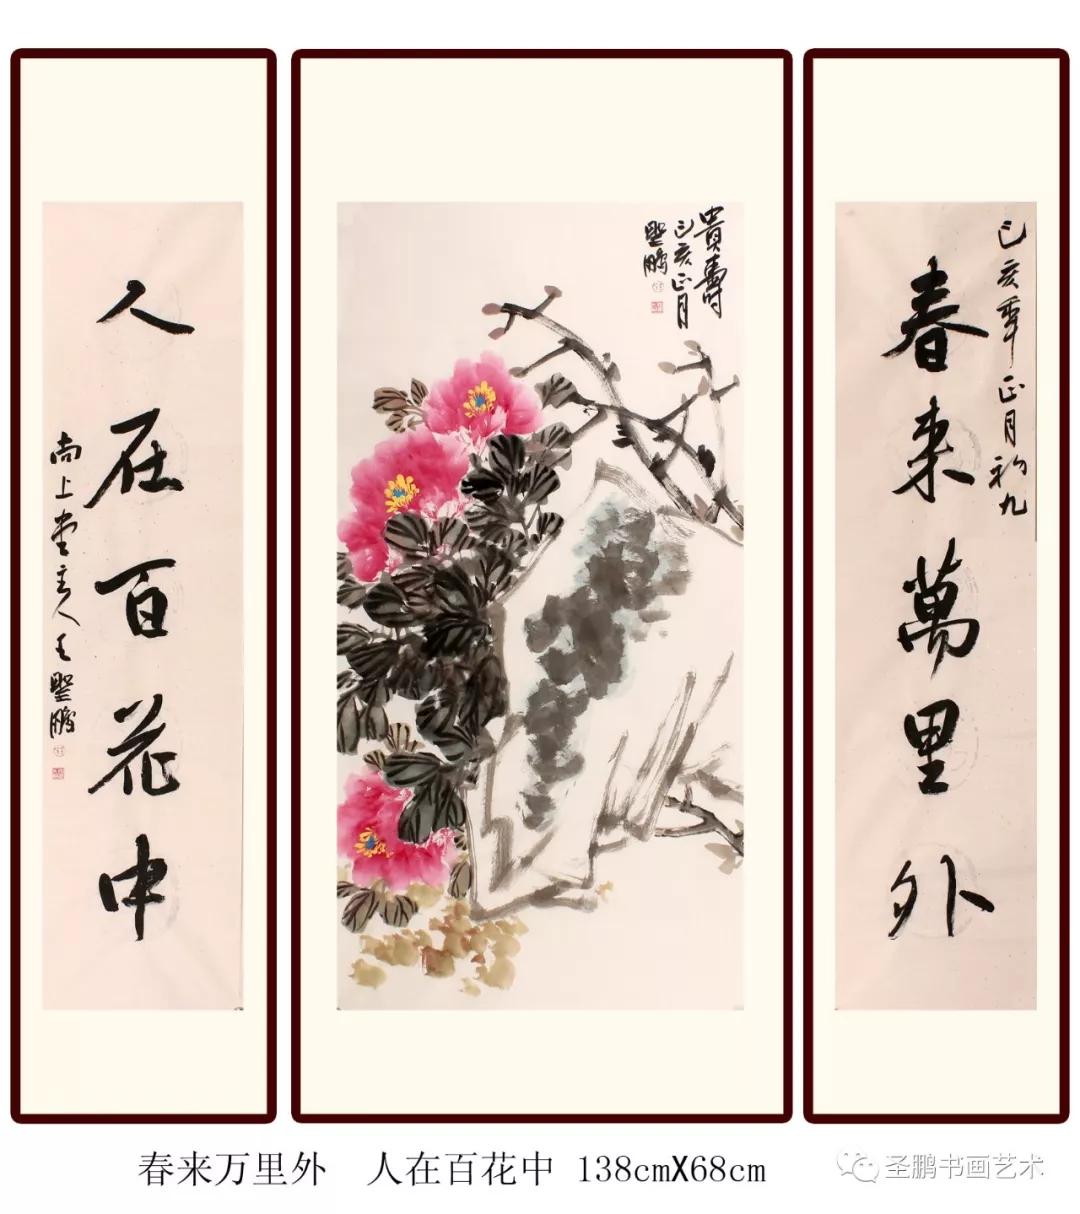 己亥年正月初九
春来萬里外
貴壽
己亥正月
聖鵬
人在百花中
尚上堂主人王聖鵬
春来万里外 人在百花中 138cmX68cm
圣鹏书画艺术